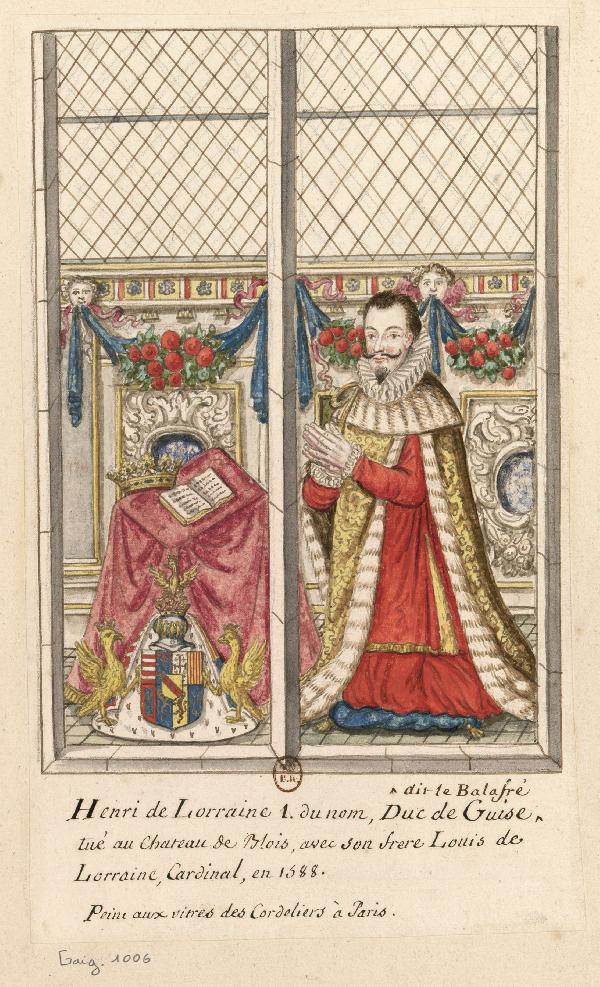 ‸ dit le Balafré
Henri de Lorraine 1. du nom, Duc de Guise‸
tué au Chateau de Blois, avec son frere Louis de
Lorraine, Cardinal, en 1588.
Peint aux vitres des Cordeliers à Paris.
Gaig. 1006